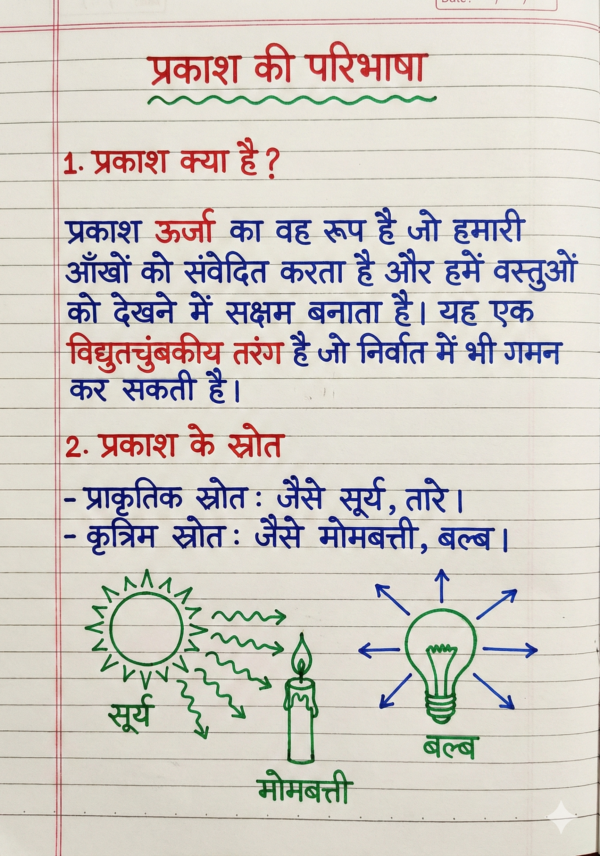 Date:
प्रकाश की परिभाषा
1. प्रकाश क्या है?
प्रकाश ऊर्जा का वह रूप है जो हमारी
आँखों को संवेदित करता है और हमें वस्तुओं
को देखने में सक्षम बनाता है। यह एक
विद्युतचुंबकीय तरंग है जो निर्वात में भी गमन
कर सकती है।
2. प्रकाश के स्रोत
- प्राकृतिक स्रोत: जैसे सूर्य, तारे।
- कृत्रिम स्रोत: जैसे मोमबत्ती, बल्ब।
सूर्य
बल्ब
मोमबत्ती